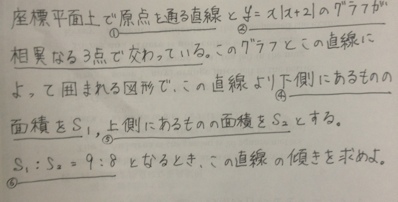 座標平面上で原点を通る直線と y=x|x+2|のグラフが
① ②
相異なる3点で交わっている。このグラフとこの直線に
よって囲まれる図形で、この直線より下側にあるものの
④
面積をS₁, 上側にあるものの面積をS₂とする。
⑤
S₁:S₂=9:8 となるとき、この直線の傾きを求めよ。
⑥